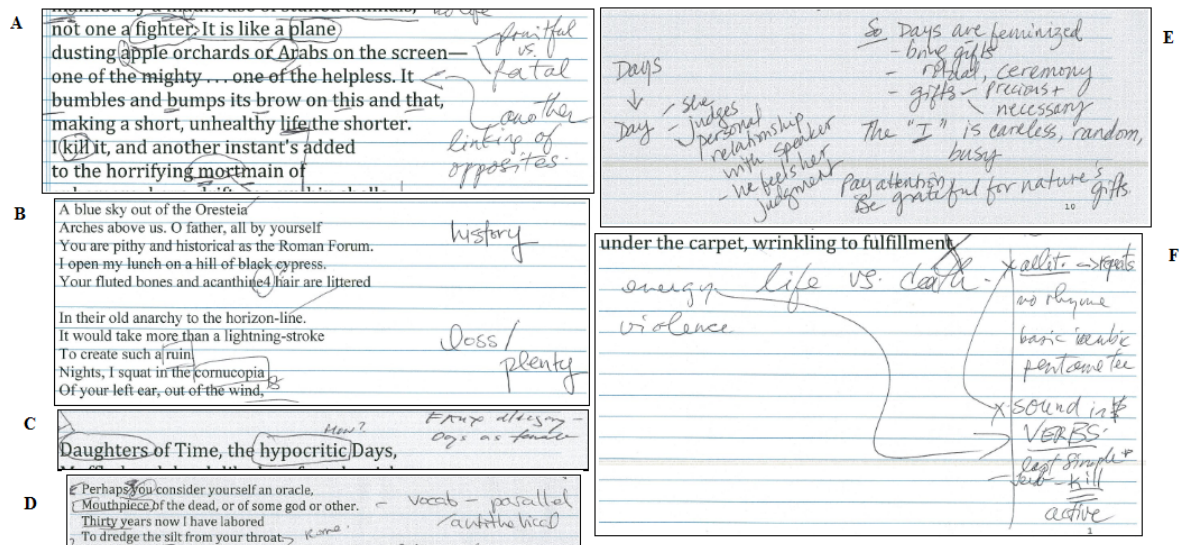 A
not one a fighter. It is like a plane
dusting apple orchards or Arabs on the screen—
one of the mighty . . . one of the helpless. It
bumbles and bumps its brow on this and that,
making a short, unhealthy life the shorter.
I kill it, and another instant's added
to the horrifying mortmain of
fruitful
vs.
fatal
another
linking of
opposites.
B
A blue sky out of the Oresteia
Arches above us. O father, all by yourself
You are pithy and historical as the Roman Forum.
I open my lunch on a hill of black cypress.
Your fluted bones and acanthine4 hair are littered
In their old anarchy to the horizon-line.
It would take more than a lightning-stroke
To create such a ruin.
Nights, I squat in the cornucopia
Of your left ear, out of the wind,
history
loss/
plenty
C
How?
Daughters of Time, the hypocritic Days,
allegory –
Days as female
D
Perhaps you consider yourself an oracle,
Mouthpiece of the dead, or of some god or other.
Thirty years now I have labored
To dredge the silt from your throat.
vocab – parallel
/antithetical
Rome.
E
Days
Day
– she
judges
personal
relationship
with speaker
– he feels her
judgment
So Days are feminized
– bring gifts
– ritual, ceremony
– gifts – precious +
necessary
The "I" is careless, random,
busy
Pay attention
Be grateful for nature's gifts.
10
F
under the carpet, wrinkling to fulfillment.
energy
violence
life vs. death.
x allit. → repeats
no rhyme
basic iambic
pentameter
x sound in
VERBS
last simple
verb – kill
active
1